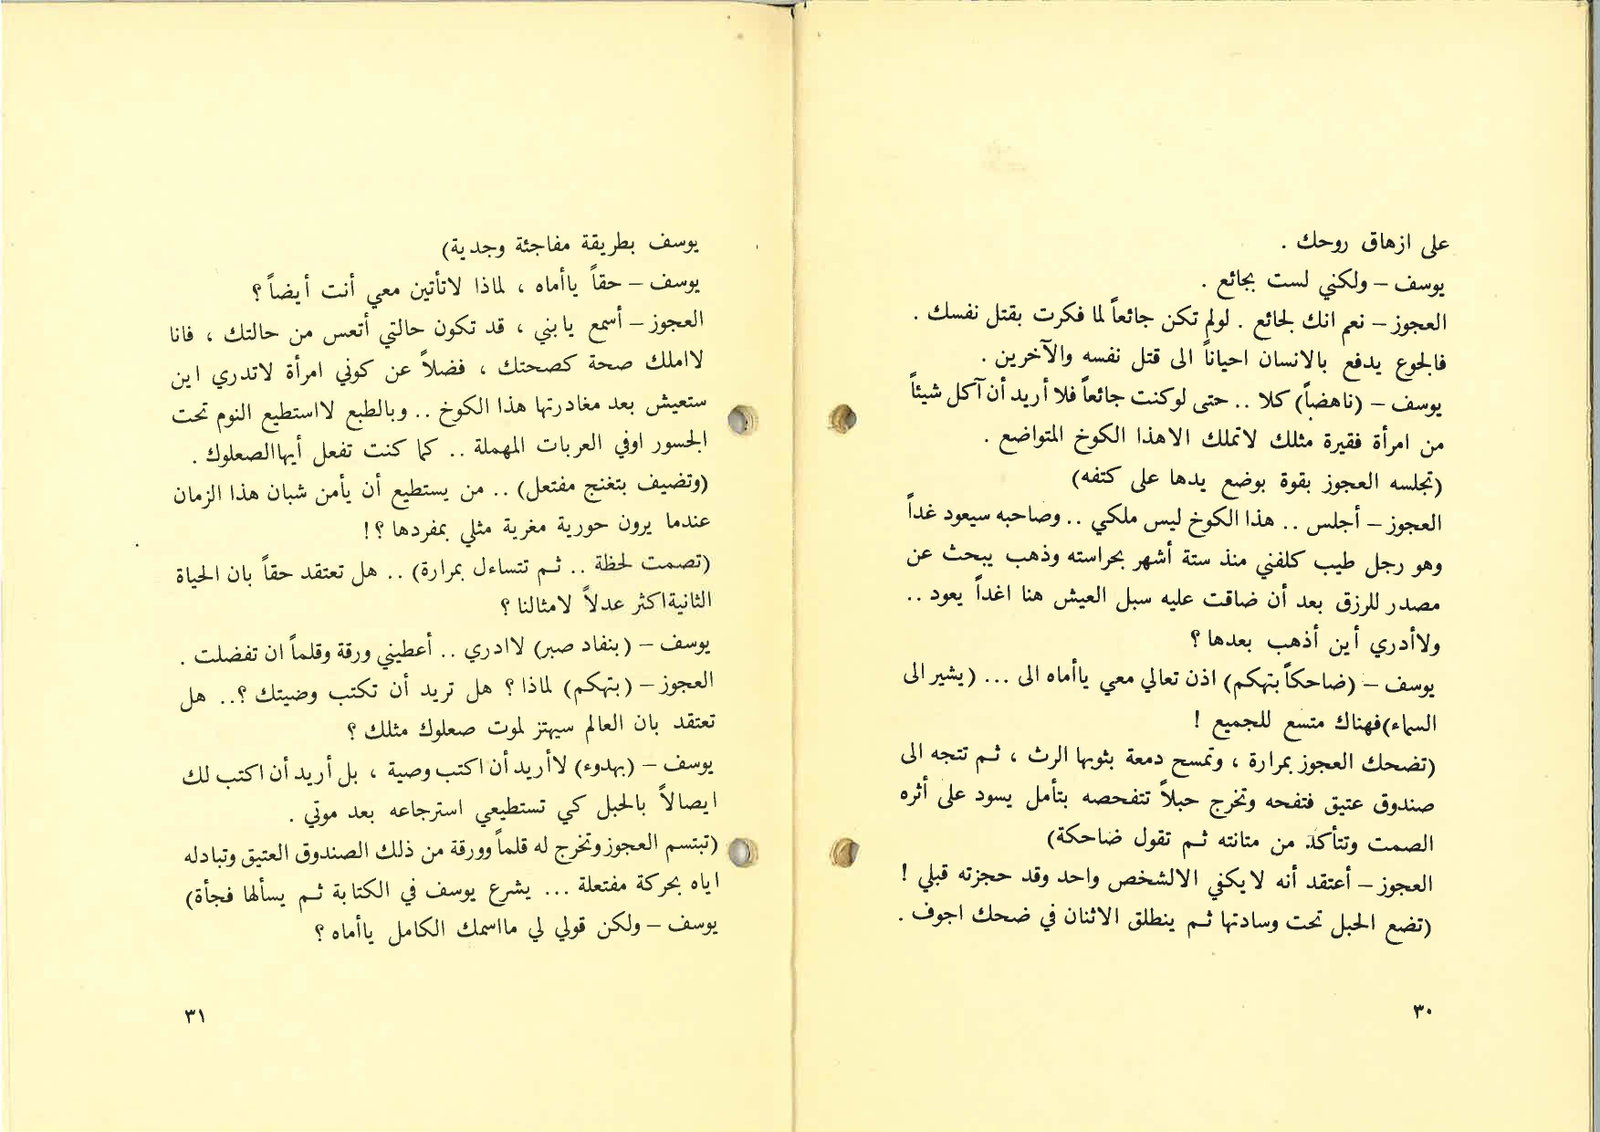 على ازهاق روحك .
يوسف – ولكني لست بجائع .
العجوز – نعم انك لجائع . لولم تكن جائعاً لما فكرت بقتل نفسك .
فالجوع يدفع بالانسان احياناً الى قتل نفسه والآخرين .
يوسف – (ناهضاً) كلا .. حتى لوكنت جائعاً فلا أريد أن آكل شيئاً
من امرأة فقيرة مثلك لاتملك الاهذا الكوخ المتواضع .
(تجلسه العجوز بقوة بوضع يدها على كتفه)
العجوز – أجلس .. هذا الكوخ ليس ملكي .. وصاحبه سيعود غداً
وهو رجل طيب كلفني منذ ستة أشهر بحراسته وذهب يبحث عن
مصدر للرزق بعد أن ضاقت عليه سبل العيش هنا اغداً يعود ..
ولاأدري أين أذهب بعدها ؟
يوسف – (ضاحكاً بتهكم) اذن تعالي معي ياأماه الى ... (يشير الى
السماء)فهناك متسع للجميع !
(تضحك العجوز بمرارة ، وتمسح دمعة بثوبها الرث ، ثم تتجه الى
صندوق عتيق فتفحه وتخرج حبلاً تتفحصه بتأمل يسود على أثره
الصمت وتتأكد من متانته ثم تقول ضاحكة)
العجوز – أعتقد أنه لايكفي الالشخص واحد وقد حجزته قبلي !
(تضع الحبل تحت وسادتها ثم ينطلق الاثنان في ضحك اجوف .
٣٠
يوسف بطريقة مفاجئة وجدية)
يوسف – حقاً ياأماه ، لماذا لاتأتين معي أنت أيضاً ؟
العجوز – أسمع يابني ، قد تكون حالتي أتعس من حالتك ، فانا
لااملك صحة كصحتك ، فضلاً عن كوني امرأة لاتدري اين
ستعيش بعد مغادرتها هذا الكوخ .. وبالطبع لااستطيع النوم تحت
الجسور اوفي العربات المهملة .. كما كنت تفعل أيهاالصعلوك .
(وتضيف بتغنج مفتعل) .. من يستطيع أن يأمن شبان هذا الزمان
عندما يرون حورية مغرية مثلي بمفردها ؟!
(تصمت لحظة .. ثم تتساءل بمرارة) .. هل تعتقد حقاً بان الحياة
الثانيةاكثر عدلاً لامثالنا ؟
يوسف – (بنفاد صبر) لاادري .. أعطيني ورقة وقلماً ان تفضلت .
العجوز – (بتهكم) لماذا ؟ هل تريد أن تكتب وضيتك ؟.. هل
تعتقد بان العالم سيهتز لموت صعلوك مثلك ؟
يوسف – (بهدوء) لاأريد أن اكتب وصية ، بل أريد أن اكتب لك
ايصالاً بالحبل كي تستطيعي استرجاعه بعد موتي .
(تبتسم العجوزوتخرج له قلماً وورقة من ذلك الصندوق العتيق وتبادله
اياه بحركة مفتعلة ... يشرع يوسف في الكتابة ثم يسألها فجأة)
يوسف – ولكن قولي لي مااسمك الكامل ياأماه ؟
٣١